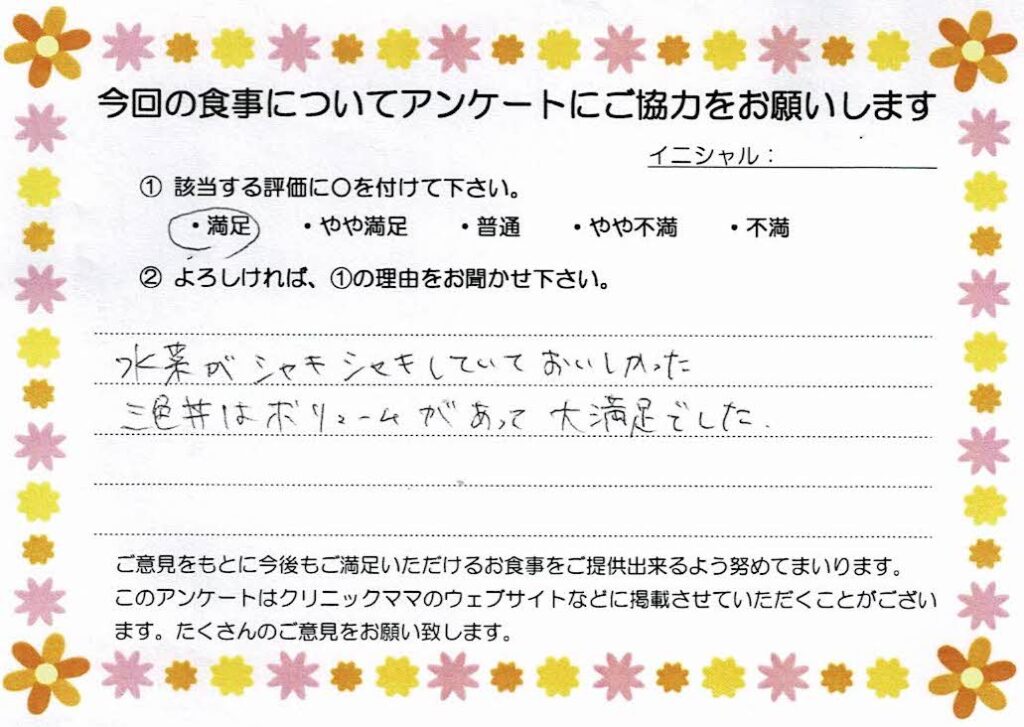 今回の食事についてアンケートにご協力をお願いします
イニシャル：
① 該当する評価に〇を付けて下さい。
・満足 ・やや満足 ・普通 ・やや不満 ・不満
② よろしければ、①の理由をお聞かせ下さい。
水菜がシャキシャキしていておいしかった
三色丼はボリュームがあって大満足でした.
ご意見をもとに今後もご満足いただけるお食事をご提供出来るよう努めてまいります。
このアンケートはクリニックママのウェブサイトなどに掲載させていただくことがござい
ます。たくさんのご意見をお願い致します。